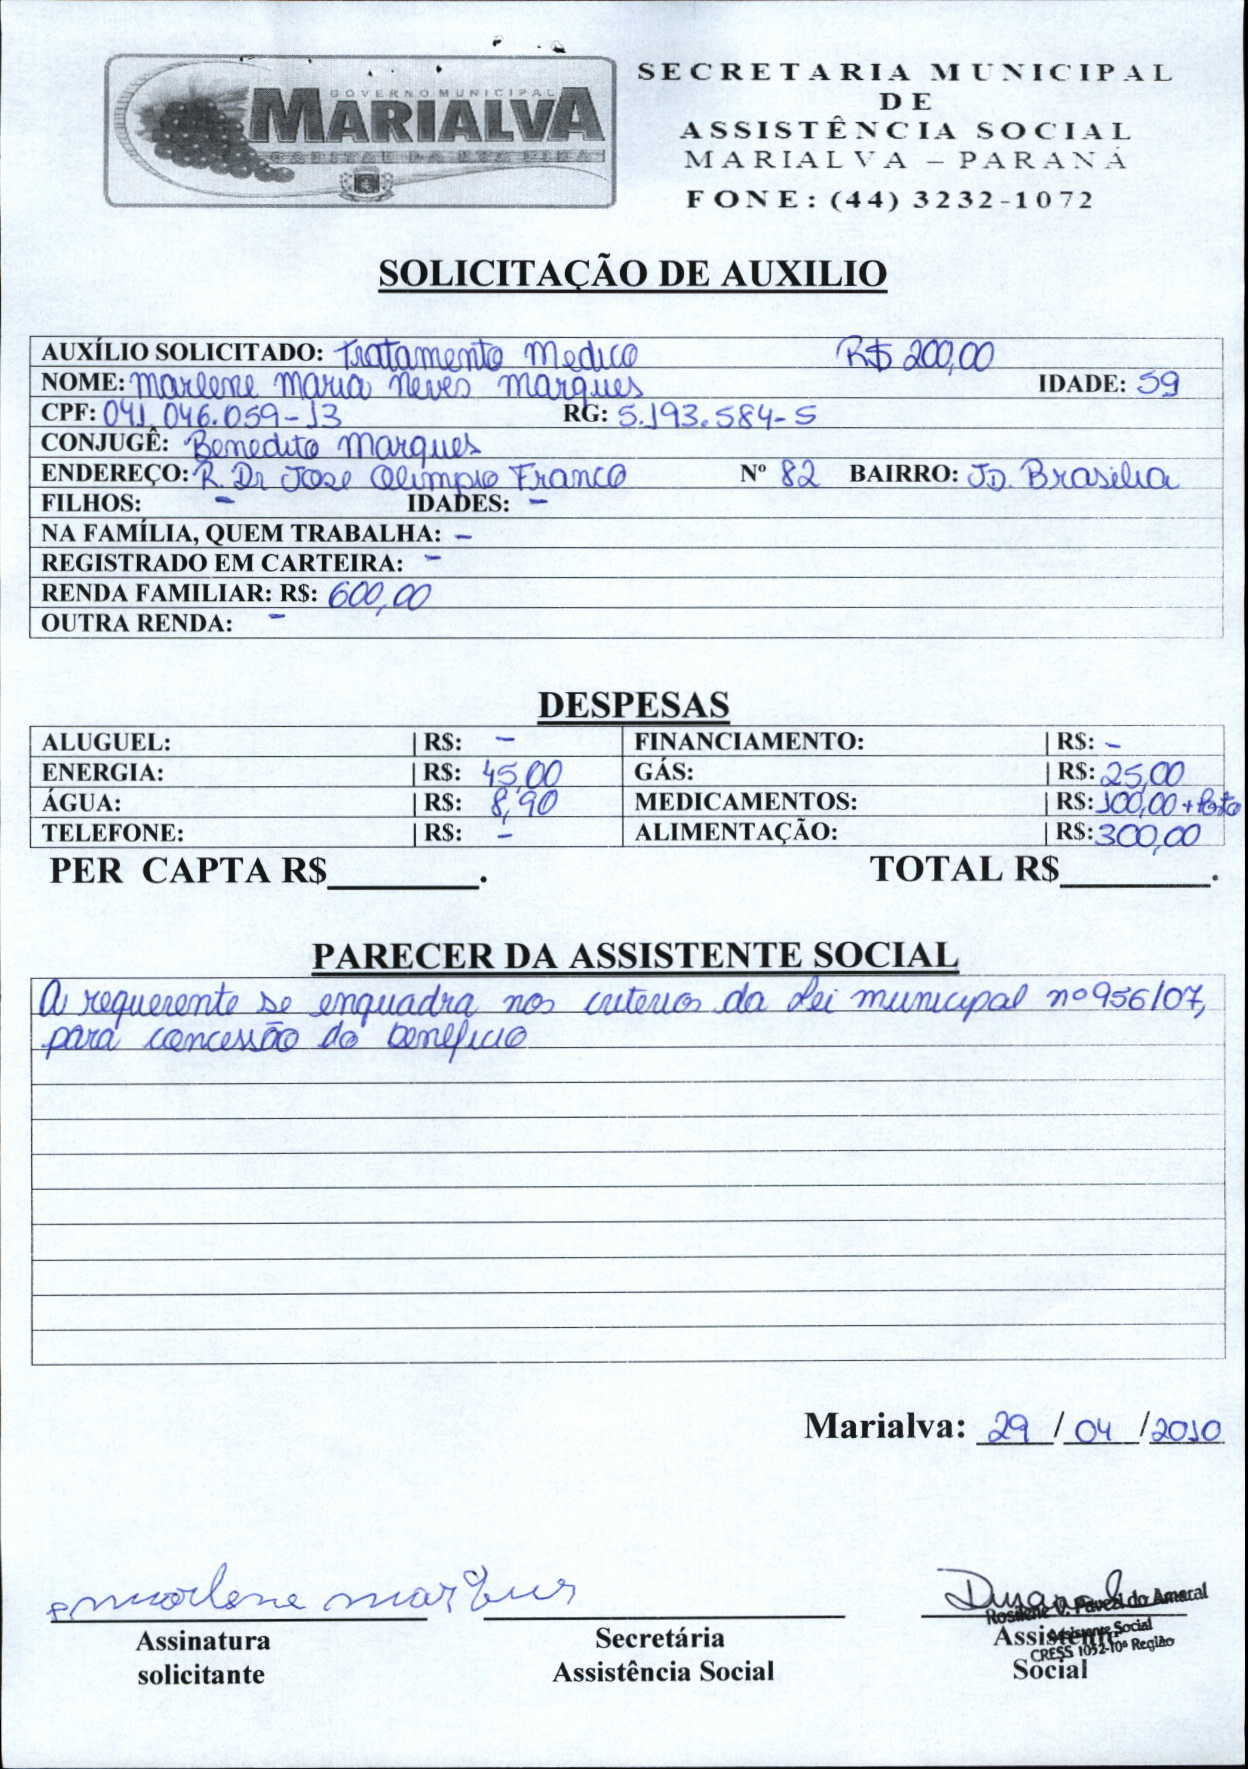 GOVERNO MUNICIPAL
MARIALVA
CAPITAL DA UVA FINA
SECRETARIA MUNICIPAL
DE
ASSISTÊNCIA SOCIAL
MARIALVA – PARANÁ
FONE: (44) 3232-1072
SOLICITAÇÃO DE AUXILIO
AUXÍLIO SOLICITADO: Tratamento Medico R$ 200,00
NOME: Marlene Maria Neves Marques IDADE: 59
CPF: 041.046.059-13 RG: 5.193.584-5
CONJUGÊ: Benedito Marques
ENDEREÇO: R. Dr Jose Olimpio Franco Nº 82 BAIRRO: JD. Brasilia
FILHOS: - IDADES: -
NA FAMÍLIA, QUEM TRABALHA: -
REGISTRADO EM CARTEIRA: -
RENDA FAMILIAR: R$: 600,00
OUTRA RENDA: -
DESPESAS
ALUGUEL: | R$: - FINANCIAMENTO: | R$: -
ENERGIA: | R$: 45,00 GÁS: | R$: 25,00
ÁGUA: | R$: 8,90 MEDICAMENTOS: | R$: 100,00 + Posto
TELEFONE: | R$: - ALIMENTAÇÃO: | R$: 300,00
PER CAPTA R$________. TOTAL R$________.
PARECER DA ASSISTENTE SOCIAL
A requerente se enquadra nos criterios da Lei municipal nº 956/07,
para concessão do beneficio
Marialva: 29 / 04 / 2010
Marlene Marques
Rosilene V. Pavezi do Amaral
Assistente Social
CRESS 1052-10ª Região
Assinatura
solicitante
Secretária
Assistência Social
Assistente
Social